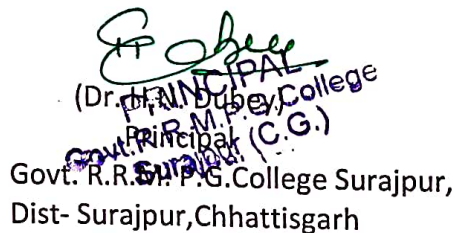 (Dr. H.N. Dubey)
Principal
Govt. R.R.M. P.G.College Surajpur,
Dist- Surajpur,Chhattisgarh
PRINCIPAL
Govt. R.R.M.P.G. College
Surajpur (C.G.)